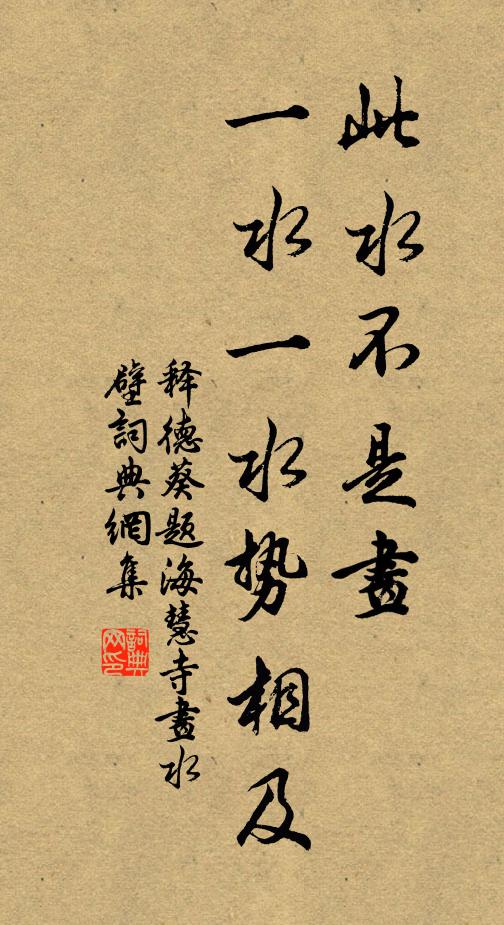 此水不是畫
一水一水势相及
释德葵题海慧寺畫水
壁詞典網集
詞典
网印